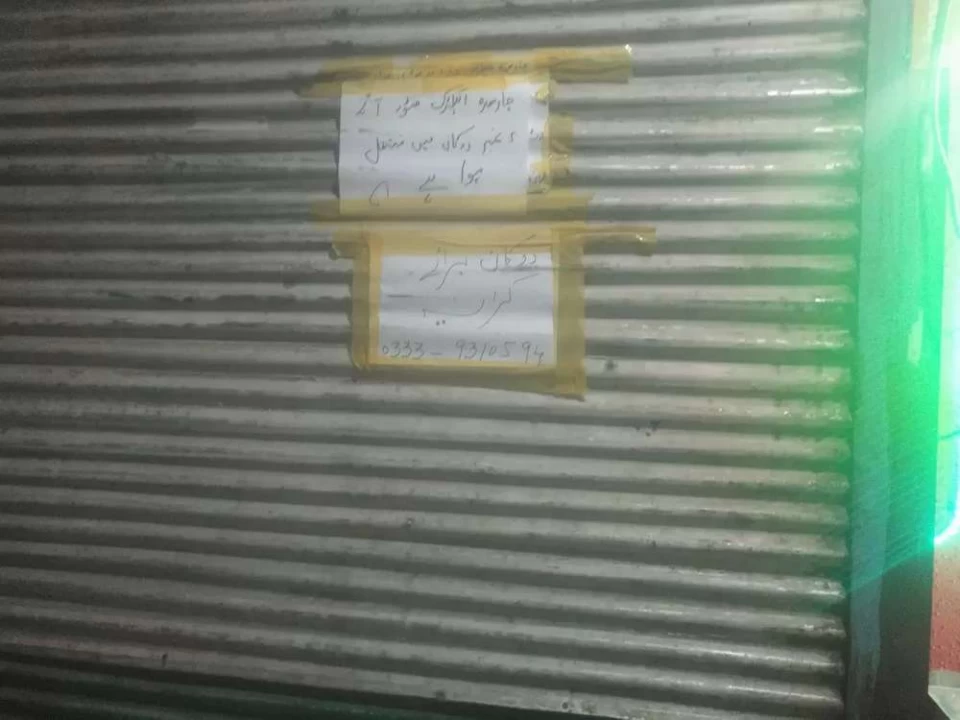 چارسدہ الیکٹرک سٹور آگے
نمبر دوکان میں منتقل
ہوا ہے
دوکان برائے
کرایہ
0333-9310594